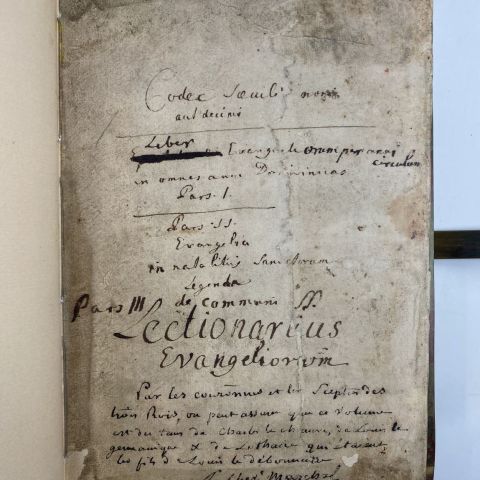 Codex Saeculi noni
aut decimi
Liber
Evangeliorum per anni
circulum
in omnes anni Dominicas
Pars I.
Pars II.
Evangelia
in natalitiis Sanctorum
legenda
Pars III de communi SS.
Lectionarius
Evangeliorum
Par les couronnes et les Sceptres des
trois Rois, on peut assurer que ce volume
est du tems de Charles le chauve, de Louis le
germanique & de Lothaire qui étaient
les fils de Louis le débonnaire